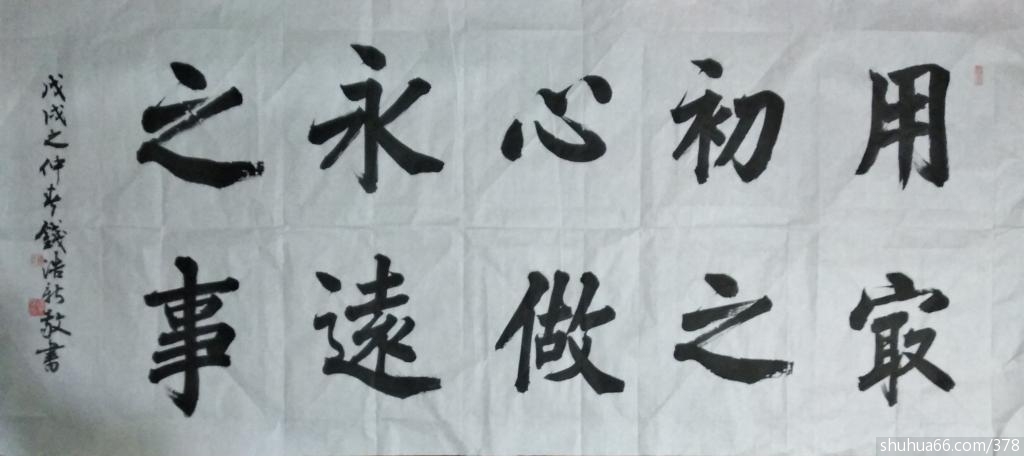 用㝡
初之
心做
永遠
之事
戊戌之仲春錢浩新敬書
shuhua66.com/378